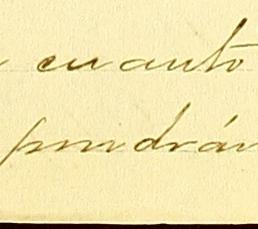 en cuanto
pondrán